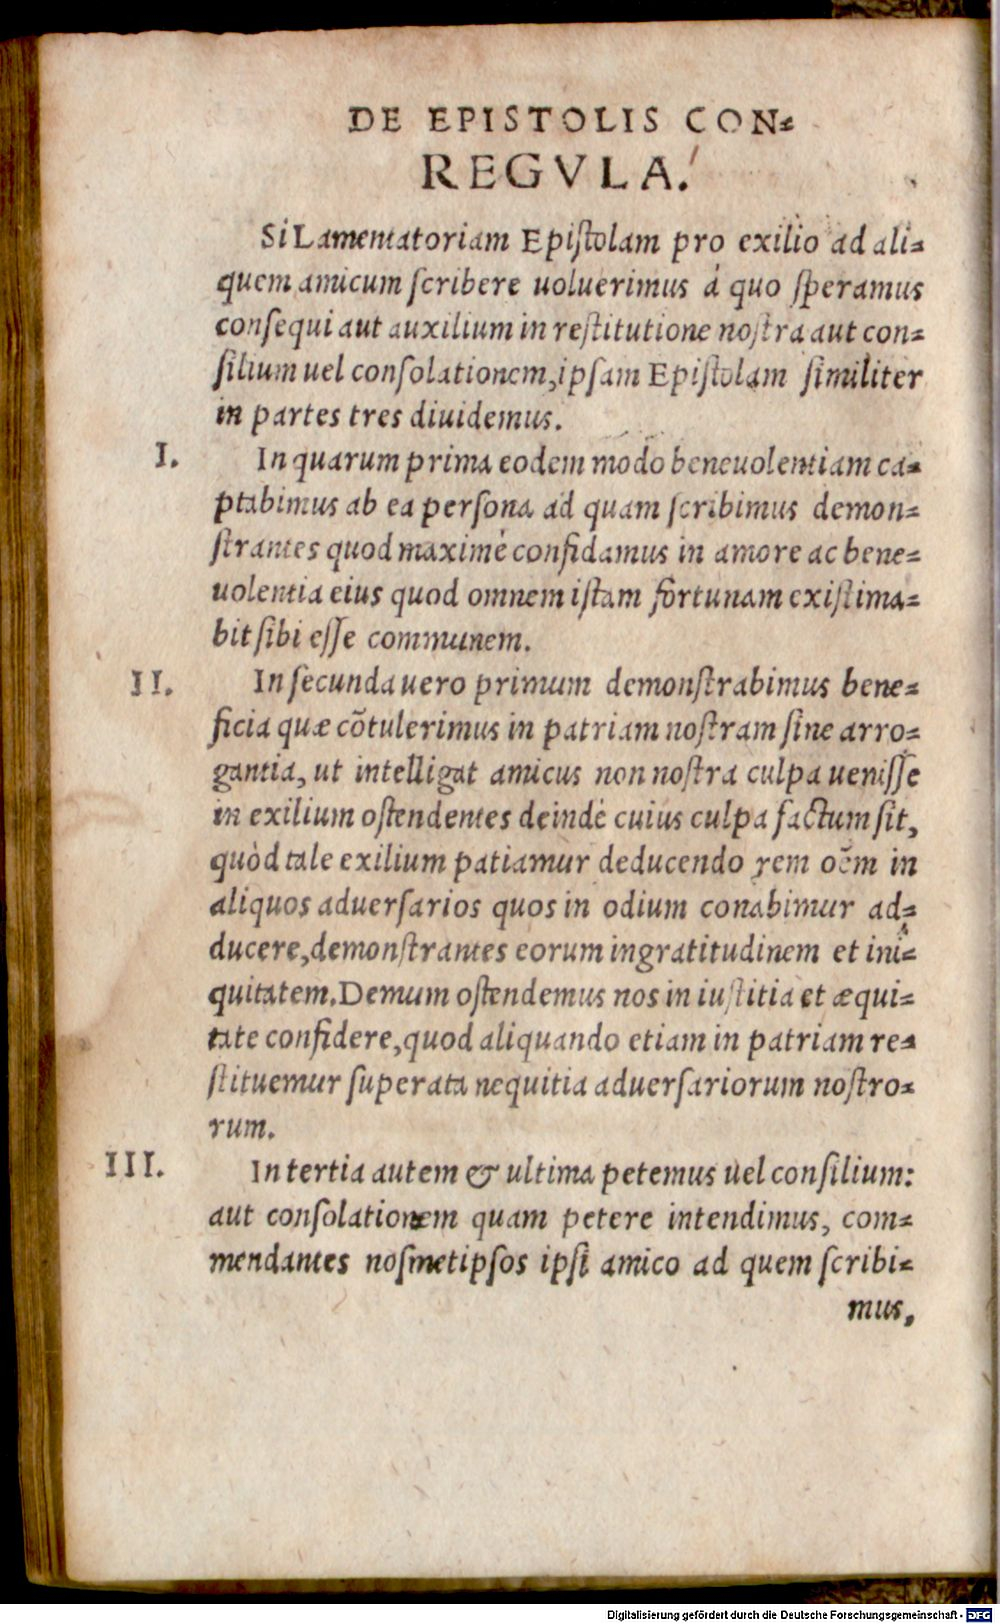 DE EPISTOLIS CON-
REGVLA.
Si Lamentatoriam Epistolam pro exilio ad ali-
quem amicum scribere uoluerimus á quo speramus
consequi aut auxilium in restitutione nostra aut con-
silium uel consolationem, ipsam Epistolam similiter
in partes tres diuidemus.
I. In quarum prima eodem modo beneuolentiam ca-
ptabimus ab ea persona ad quam scribimus demon-
strantes quod maximé confidamus in amore ac bene-
uolentia eius quod omnem istam fortunam existima-
bit sibi esse communem.
II. In secunda uero primum demonstrabimus bene-
ficia quæ cōtulerimus in patriam nostram sine arro-
gantia, ut intelligat amicus non nostra culpa uenisse
in exilium ostendentes deindè cuius culpa factum sit,
quòd tale exilium patiamur deducendo rem oēm in
aliquos aduersarios quos in odium conabimur ad-
ducere, demonstrantes eorum ingratitudinem et ini-
quitatem. Demum ostendemus nos in iustitia et æqui-
tate confidere, quod aliquando etiam in patriam re-
stituemur superata nequitia aduersariorum nostro-
rum.
III. In tertia autem & ultima petemus uel consilium:
aut consolationem quam petere intendimus, com-
mendantes nosmetipsos ipsi amico ad quem scribi-
mus,
Digitalisierung gefördert durch die Deutsche Forschungsgemeinschaft - DFG